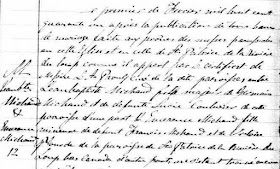 premier de Février mil huit cent
quarante un après la publication de trois bans
de mariage faite aux prônes des messes paroissiales
en cette Eglise et en celle de St Patrice de la Rivière
du Loup comme il appert par le Certificat de
Messire Curé de la dite paroisse entre
Jeanbaptiste Michaud fils majeur de Germain
Michaud et de défunte Couturier de cette
paroisse d'une part & Emerence Michaud fille
mineure de défunt François Michaud et de
de la paroisse de St Patrice de la Rivière
du Loup bas Canada d'autre part ne s'étant trouvé aucun
M
Jeanbte
Michaud
&
Emerence
Michaud
12